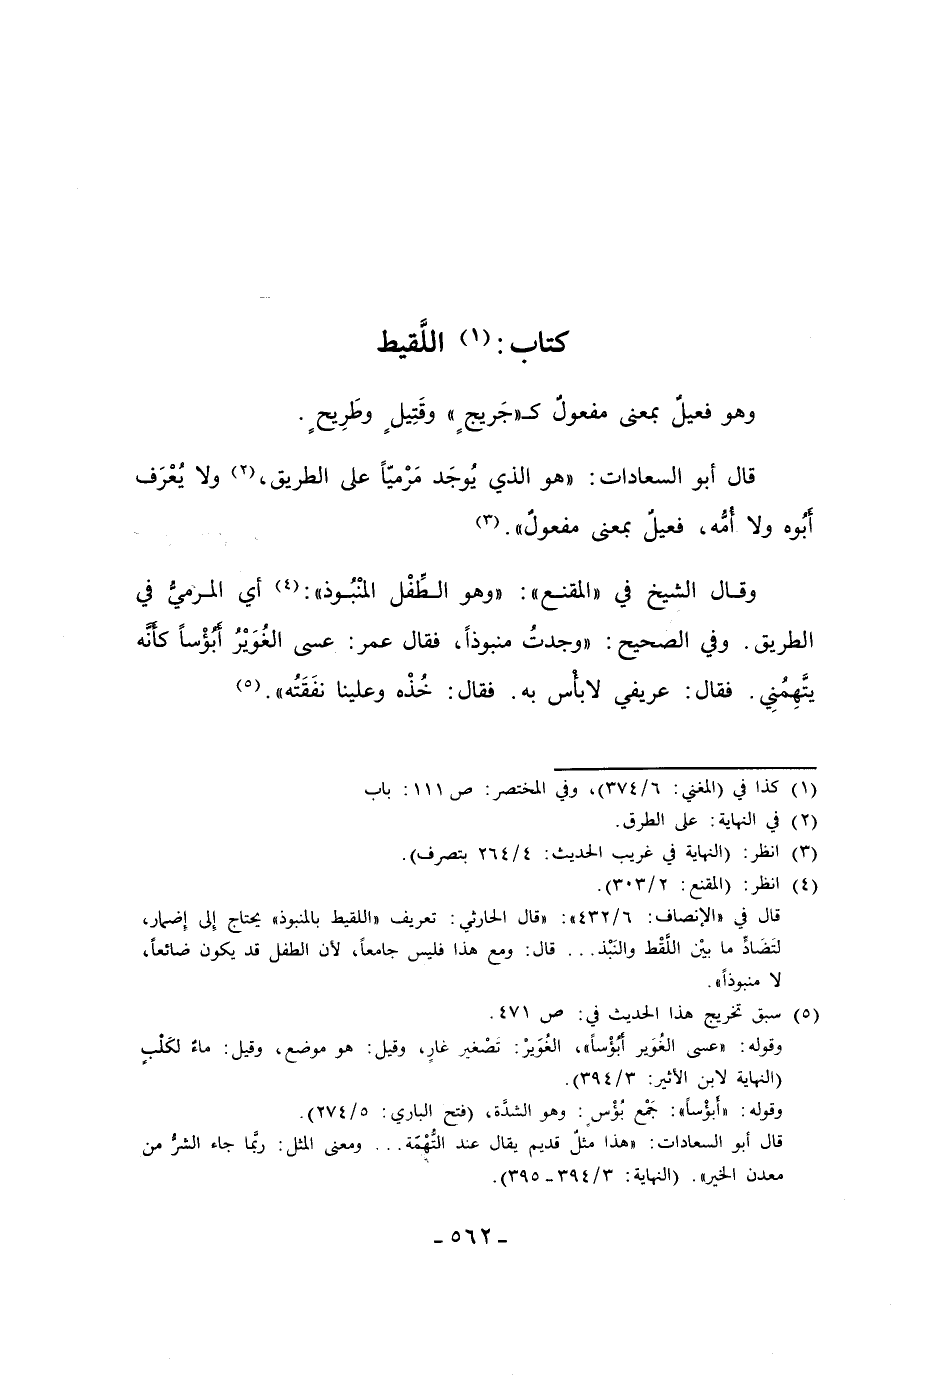 كتاب: (١) اللَّقيط
وهو فعيلٌ بمعنى مفعولٌ كـ«جَريحٍ» وقَتِيلٍ وطَرِيحٍ.
قال أبو السعادات: «هو الذي يُوجَد مَرْميّاً على الطريق،(٢) ولا يُعْرَف
أَبُوه ولا أُمُّه، فعيلٌ بمعنى مفعولٌ».(٣)
وقال الشيخ في «المقنع»: «وهو الطِّفْل المنْبُوذ»:(٤) أي المرميُّ في
الطريق. وفي الصحيح: «وجدتُ منبوذاً، فقال عمر: عسى الغُوَيْرُ أَبُؤْساً كأنَّه
يتَّهِمُنِي. فقال: عريفي لابأْس به. فقال: خُذْه وعلينا نفَقَتُه».(٥)
(١) كذا في (المغني: ٣٧٤/٦)، وفي المختصر: ص ١١١: باب
(٢) في النهاية: على الطرق.
(٣) انظر: (النهاية في غريب الحديث: ٢٦٤/٤ بتصرف).
(٤) انظر: (المقنع: ٣٠٣/٢).
قال في «الإنصاف: ٤٣٢/٦»: «قال الحارثي: تعريف «اللقيط بالمنبوذ» يحتاج إلى إضمار،
لتَضَادِّ ما بيْن اللَّقْط والنَّبْذ... قال: ومع هذا فليس جامعاً، لأن الطفل قد يكون ضائعاً،
لا منبوذاً».
(٥) سبق تخريج هذا الحديث في: ص ٤٧١.
وقوله: «عسى الغُوَير أَبُؤْساً»، الغُوَيرْ: تَصْغير غارٍ، وقيل: هو موضع، وقيل: ماءٌ لكَلْبٍ
(النهاية لابن الأثير: ٣٩٤/٣).
وقوله: «أَبؤْساً»: جَمْع بُؤْسٍ: وهو الشدَّة، (فتح الباري: ٢٧٤/٥).
قال أبو السعادات: «هذا مثلٌ قديم يقال عند التُّهْمَة... ومعنى المثل: ربَّما جاء الشرُّ من
معدن الخير». (النهاية: ٣٩٤/٣ - ٣٩٥).
- ٥٦٢ -